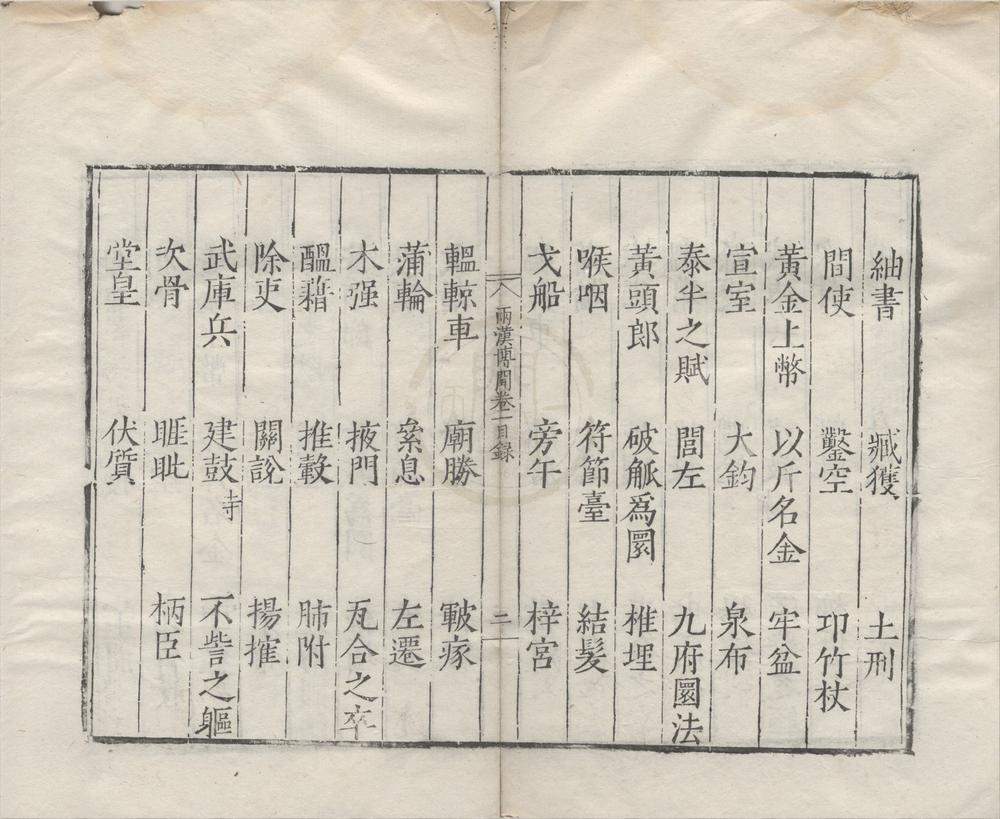 紬書 臧獲 土刑
間使 鑿空 邛竹杖
黃金上幣 以斤名金 牢盆
宣室 大鈞 泉布
泰半之賦 閭左 九府圜法
黃頭郎 破觚爲圜 椎埋
喉咽 符節臺 結髪
戈船 旁午 梓宮
兩漢博聞卷一目錄 二
轀輬車 廟勝 皸瘃
蒲輪 絫息 左遷
木强 掖門 瓦合之卒
醖藉 推轂 肺附
除吏 關說 揚搉
武庫兵 建鼓寺 不訾之軀
次骨 睚眦 柄臣
堂皇 伏質